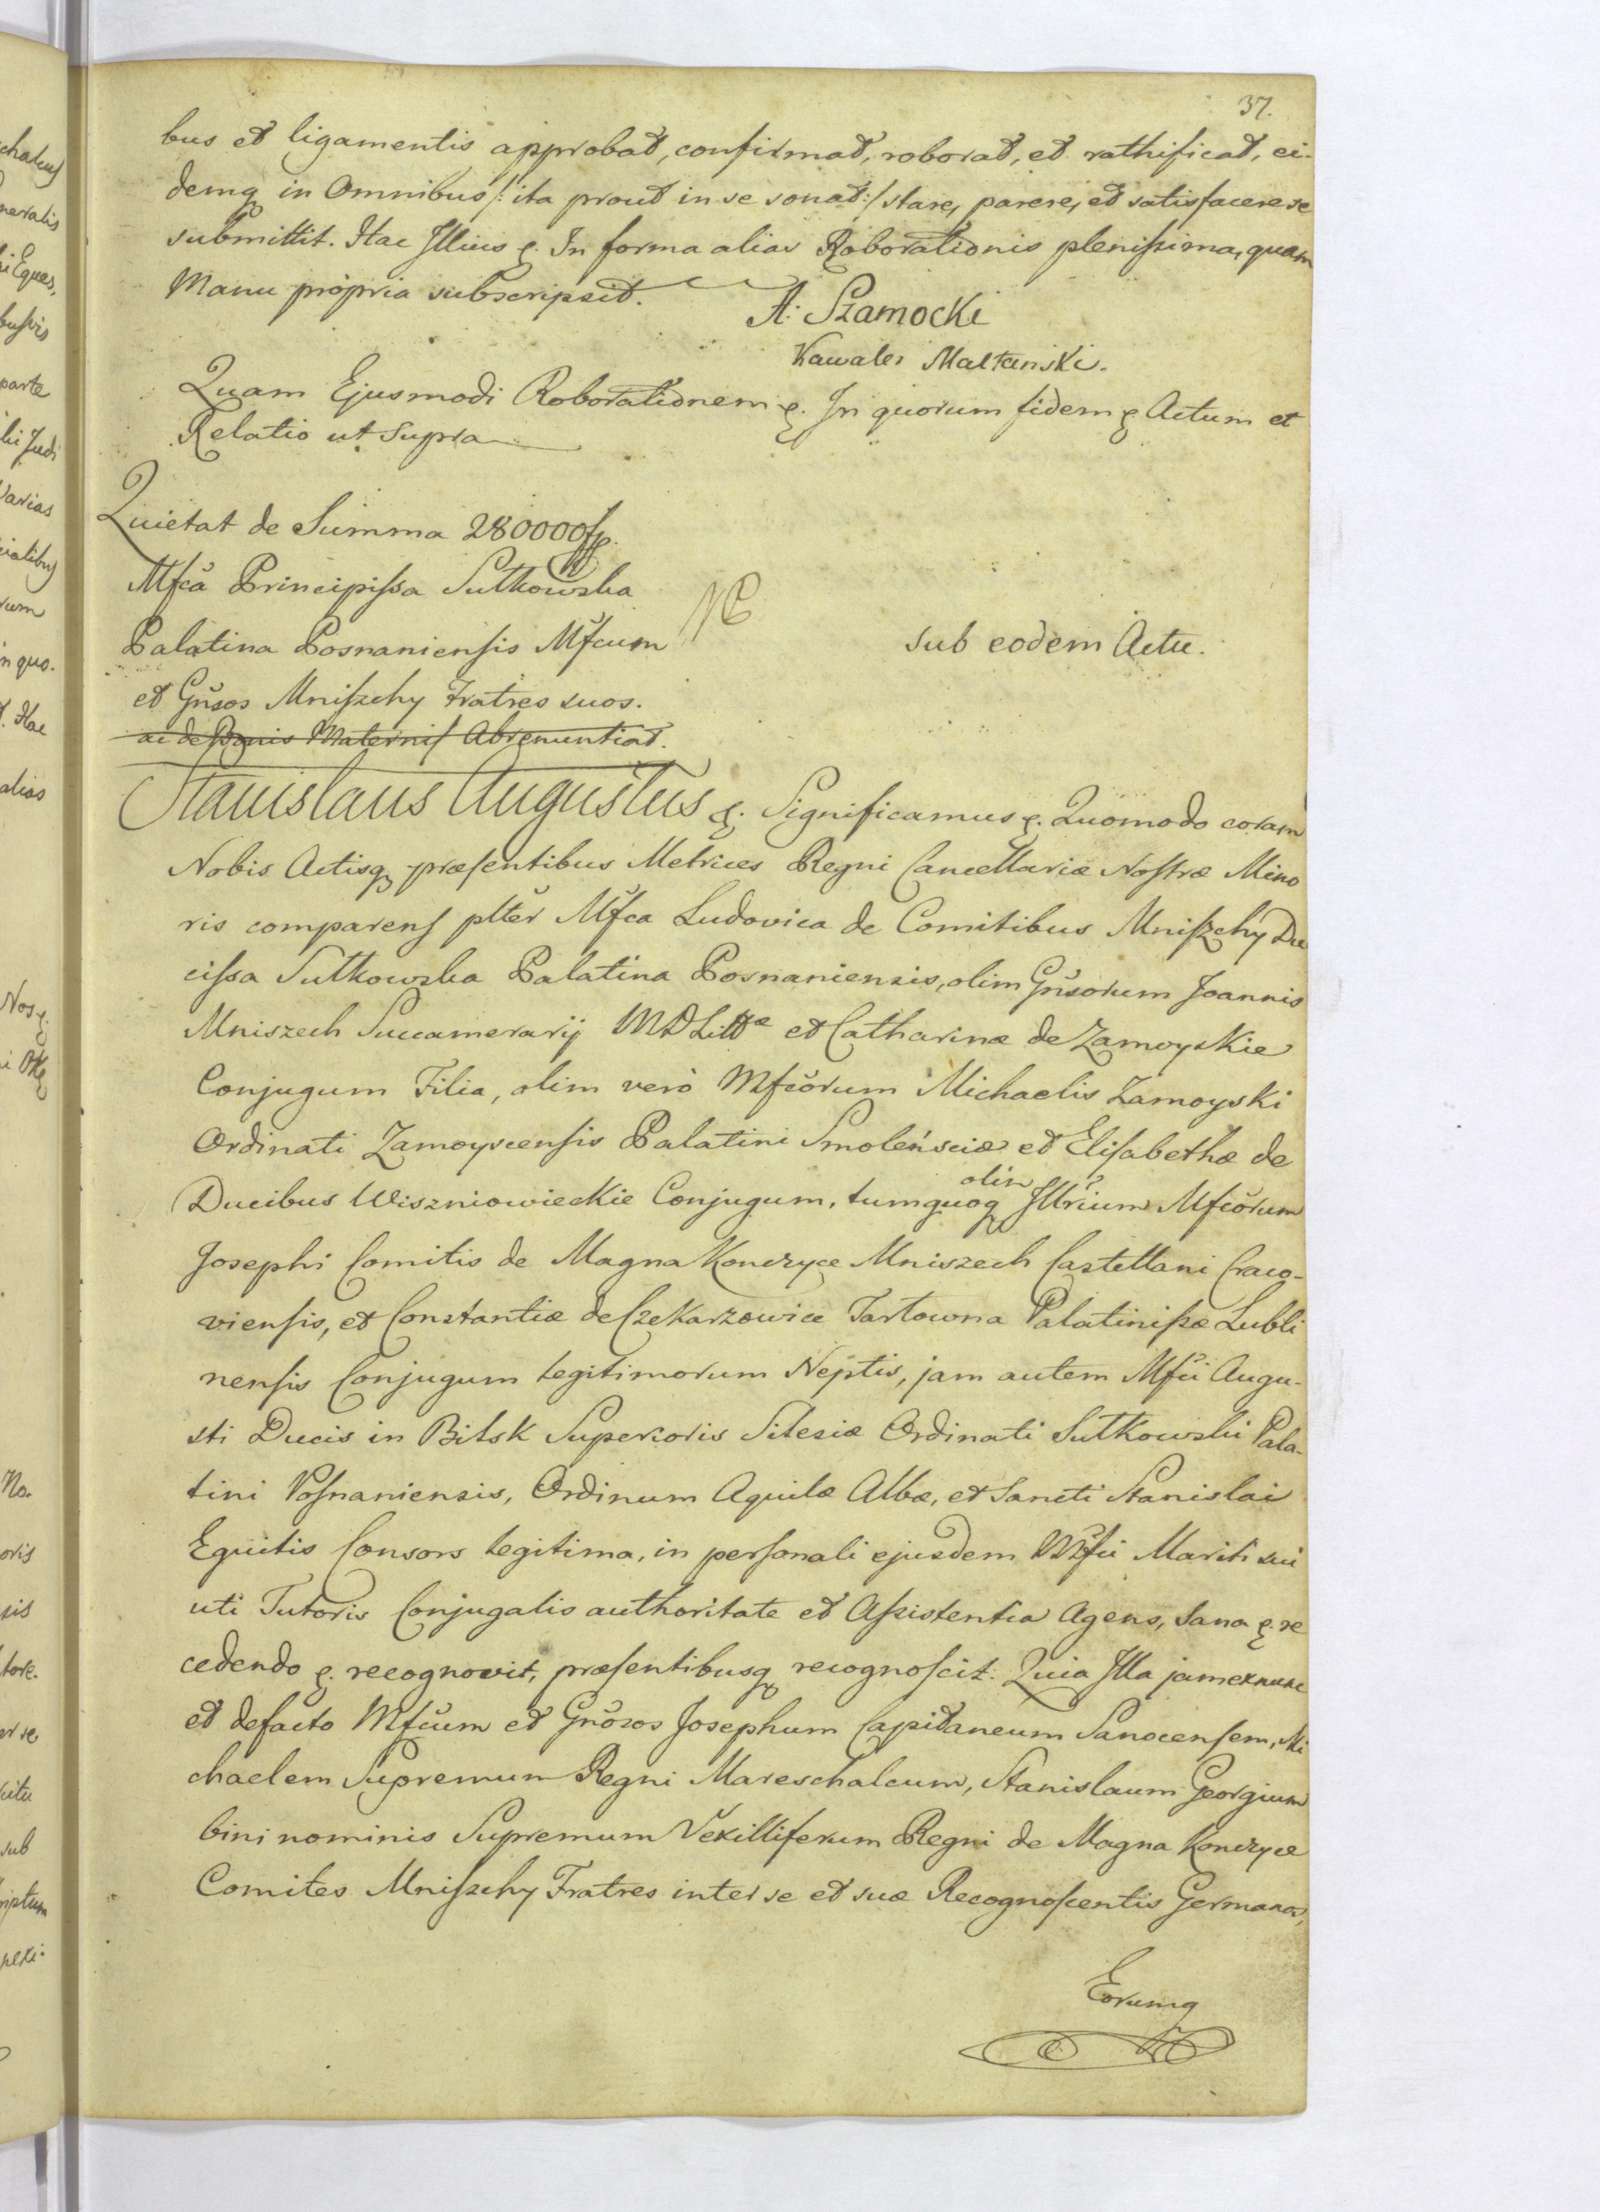 37.
bus et ligamentis approbat, confirmat, roborat, et rathificat, ei-
demq in Omnibus /: ita prout in se sonat :/ stare, parere, et satisfacere se
submittit. Hac Illius e. In forma alias Roborationis plenissima, quam
Manu propria subscripsit.
A: Szamocki
Kawaler Maltanski.
Quam Ejusmodi Roborationem e. In quorum fidem e Actum et
Relatio ut Supra
Quietat de Summa 280000 fp.
Mfca Principissa Sutkowska
Palatina Posnaniensis Mfcum
et Gnsos Mniszchy Fratres suos.
ac de Bonis Maternis Abrenuntiat.
NB
sub eodem Actu.
Stanislaus Augustus e. Significamus e. Quomodo coram
Nobis Actisq præsentibus Metrices Regni Cancellariæ Nostræ Mino
ris comparens plter Mfca Ludovica de Comitibus Mniszchy Du
cissa Sutkowska Palatina Posnaniensis, olim Gnsorum Joannis
Mniszech Succamerarij MDLittæ et Catharinæ de Zamoyskie
Conjugum Filia, olim verò Mfcorum Michaelis Zamoyski
Ordinati Zamoyscensis Palatini Smolensciæ et Elisabethæ de
Ducibus Wiszniowieckie Conjugum, tumquoq olim Illrium Mfcorum
Josephi Comitis de Magna Konczyce Mniszech Castellani Craco-
viensis, et Constantiæ de Czekarzowice Tartowna Palatinissæ Lubli
nensis Conjugum legitimorum Neptis, jam autem Mfci Augu-
sti Ducis in Bilsk Superioris Silesiæ Ordinati Sutkowski Pala-
tini Posnaniensis, Ordinum Aquilæ Albæ, et Sancti Stanislai
Equitis Consors legitima, in personali ejusdem Mfci Mariti sui
uti Tutoris Conjugalis authoritate et Assistentia Agens, Sana e. re
cedendo e. recognovit, præsentibusq recognoscit: Quia Illa jam ex nunc
et defacto Mfcum et Gnosos Josephum Capitaneum Sanocensem, Mi
chaelem Supremum Regni Mareschalcum, Stanislaum Georgium
bini nominis Supremum Vexilliferum Regni de Magna Konczyce
Comites Mniszchy Fratres inter se et suæ Recognoscentis Germanos,
Eorumq